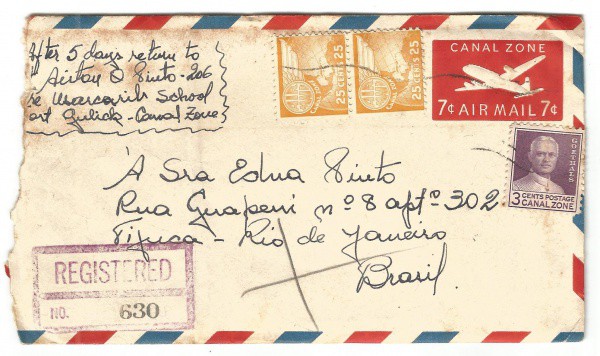 After 5 days return to
Airton O Pinto - 206
School
Gulick - Canal Zone
25 CENTS 25
CANAL ZONE
25 CENTS 25
CANAL ZONE
CANAL ZONE
7¢ AIR MAIL 7¢
GOETHALS
3 CENTS POSTAGE
CANAL ZONE
À Sra Edna Pinto
Rua Guapeni nº 8 aptº 302
Tijuca - Rio de Janeiro
Brasil.
REGISTERED
NO. 630